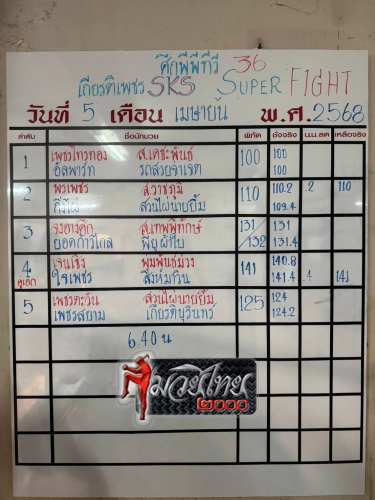 ศึกพีพีทีวี 36
เกียรติเพชร SKS SUPER FIGHT
วันที่ 5 เดือน เมษายน พ.ศ. 2568
ลำดับ ชื่อนักมวย พิกัด ชั่งจริง น.น.ลด เหลือจริง
1 เพชรไทรทอง ส.เดชะพันธ์ 100 100
อัลฟาร์ท รถสวยจ่าเจต 100
2 พรเพชร ส.วาชภูมิ 110 110.2 2 110
สวนไผ่นายยิ้ม 109.4
3 ส.เทพพิทักษ์ 131 131
132 131.4
4 เจนเชิง พุมพันธ์ม่วง 141 140.8
คู่เอก ใจเพชร สิงห์มาวิน 141.4 .4 141
5 เพชรตะวัน สวนไผ่นายยิ้ม 125 124
เพชรสยาม เกียรติบุรินทร์ 124.2
6.40 น
มวยไทย
๒๐๐๐